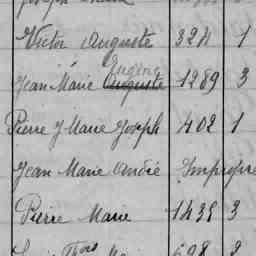 Joseph
Victor Auguste 324 1
Eugène
Jean Marie Auguste 1289 3
Pierre J Marie Joseph 402 1
Jean Marie André Impropre
Pierre Marie 1435 3
698 2